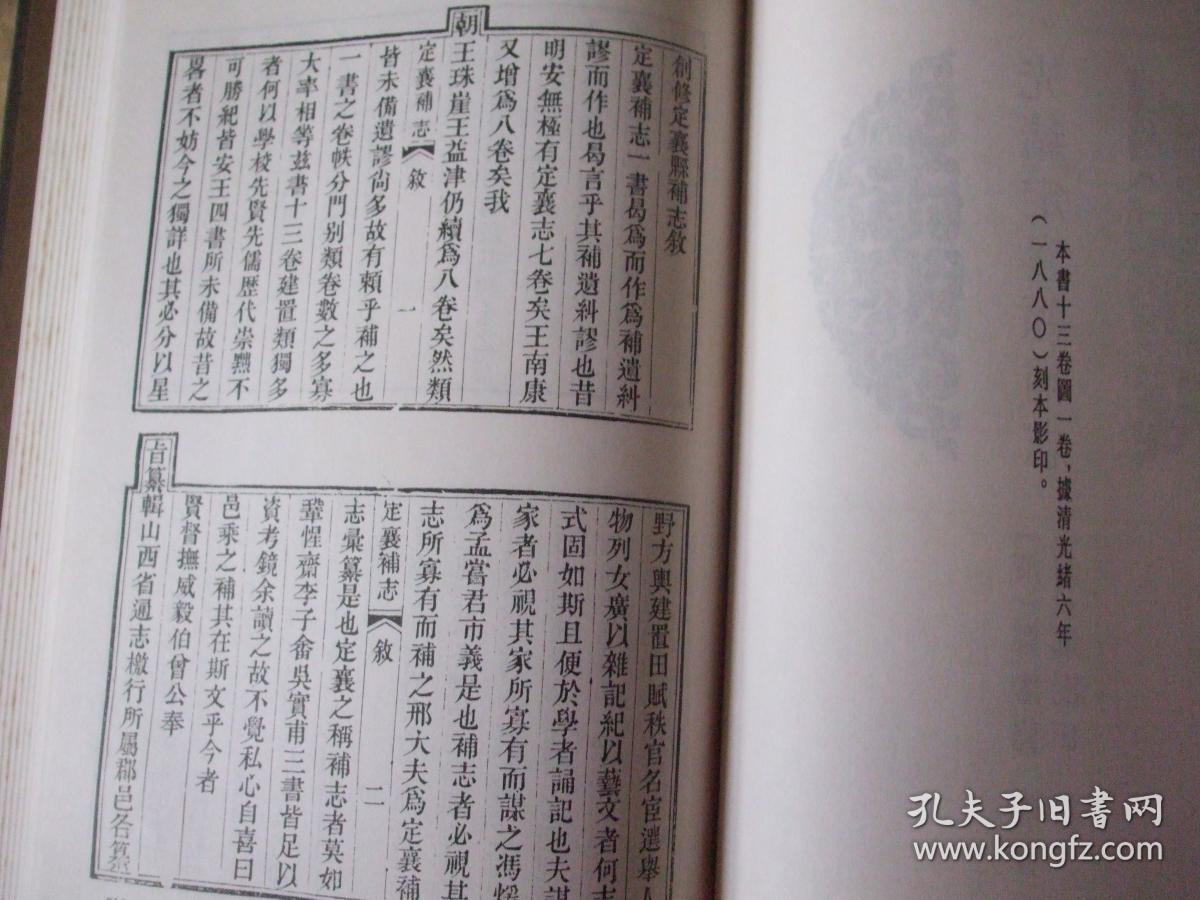 本書十三卷圖一卷，據清光緒六年
（一八八〇）刻本影印。
創修定襄縣補志敘
定襄補志一書曷爲而作爲補遺糾
謬而作也曷言乎其補遺糾謬也昔
明安無極有定襄志七卷矣王南康
又增爲八卷矣我
朝
王珠崖王益津仍續爲八卷矣然類
定襄補志
敘
一
皆未備遺謬尙多故有賴乎補之也
一書之卷帙分門别類卷數之多寡
大率相等兹書十三卷建置類獨多
者何以學校先賢先儒歷代崇黜不
可勝紀皆安王四書所未備故昔之
畧者不妨今之獨詳也其必分以星
野方輿建置田賦秩官名宦選舉人
物列女廣以雜記紀以藝文者何志
式固如斯且便於學者誦記也夫謀
家者必視其家所寡有而謀之馮煖
爲孟嘗君市義是也補志者必視其
志所寡有而補之邢大夫爲定襄補
定襄補志
敘
二
志彙纂是也定襄之稱補志者莫如
鞏惺齋李子畬吳實甫三書皆足以
資考鏡余讀之故不覺私心自喜曰
邑乘之補其在斯文乎今者
賢督撫威毅伯曾公奉
旨纂輯山西省通志檄行所屬郡邑各纂
孔夫子旧書网
www.kongfz.com